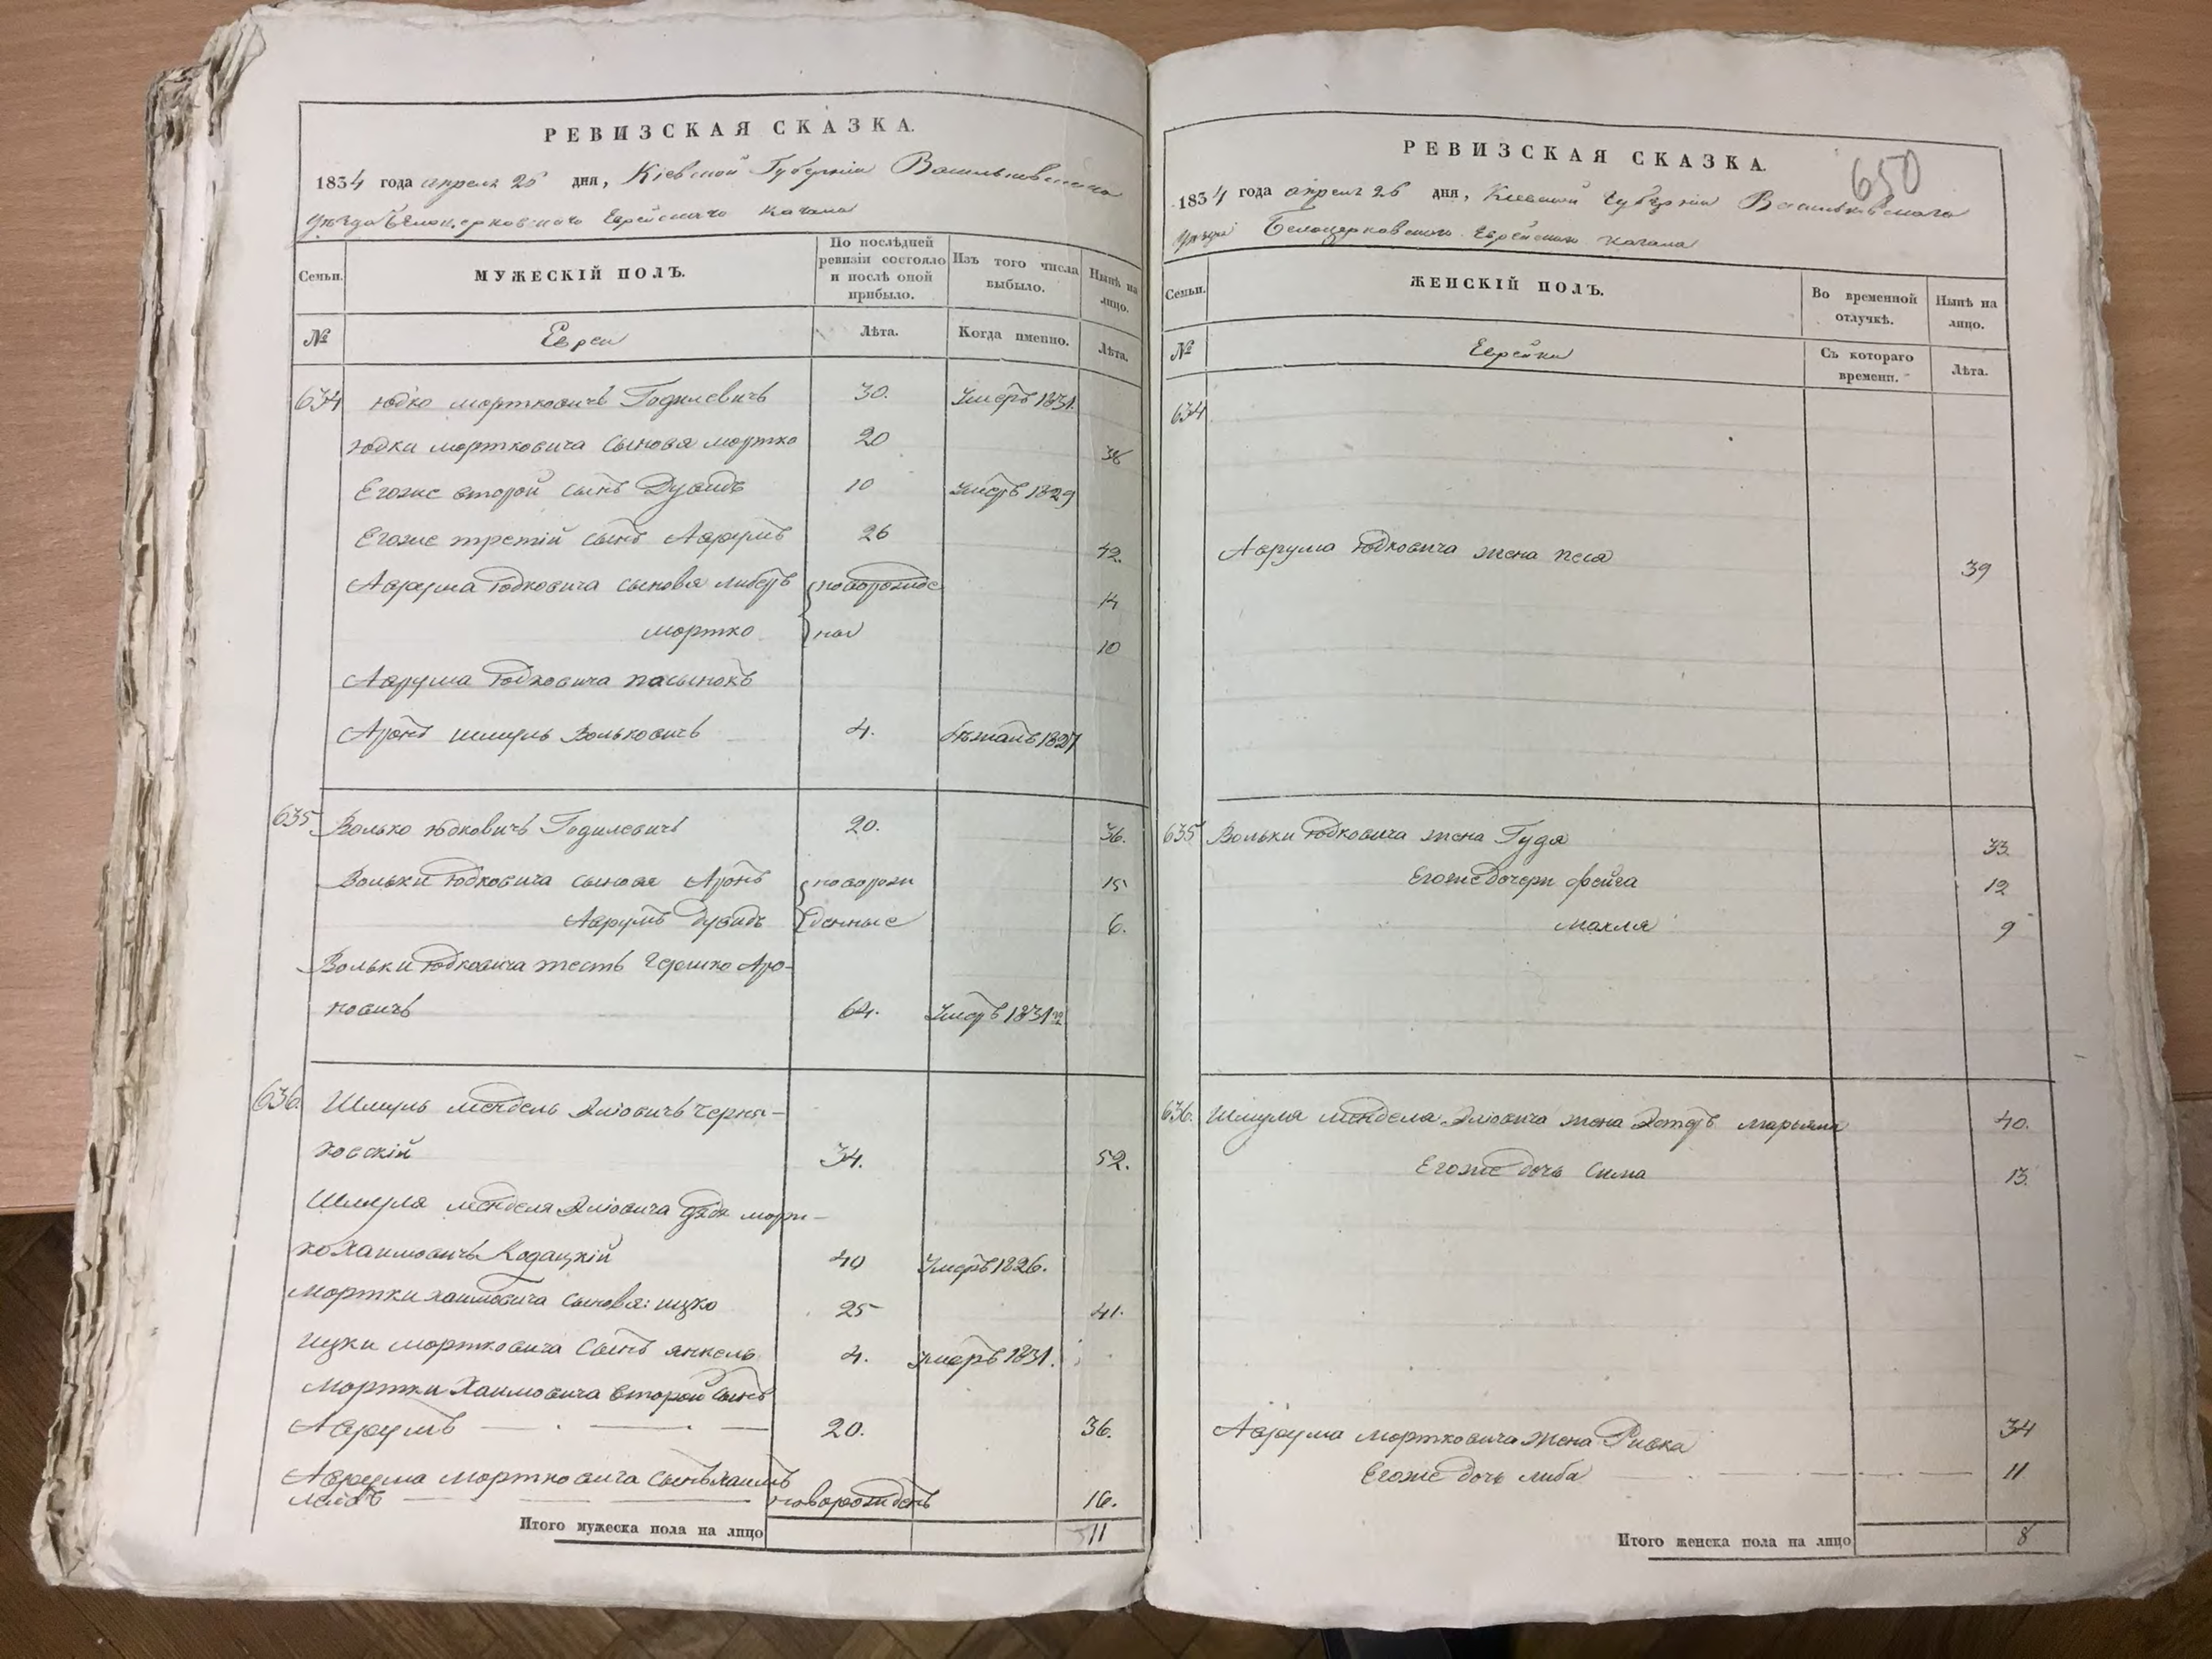 РЕВИЗСКАЯ СКАЗКА.
1834 года апреля 25 дня, Кіевской Губерніи Васильковскаго
уѣзда Бѣлоцерковскаго Еврейскаго кагала
Семьи. МУЖЕСКІЙ ПОЛЪ. По послѣдней ревизіи состояло и послѣ оной прибыло. Изъ того числа выбыло. Нынѣ на лицо.
№ Евреи Лѣта. Когда именно. Лѣта.
634 Юдко Мортковичъ Годилевичъ 30. Умеръ 1831.
Юдки Мортковича сыновя Мортко 20 36
Егоже второй сынъ Дувидъ 10 Умеръ 1829
Егоже третій сынъ Аврумъ 26 42.
Аврума Юдковича сыновя Либеръ новорожде 14
Мортко ны 10
Аврума Юдковича пасынокъ
Аронъ Шмуль Вольковичъ 4. бѣжалъ 1827
635 Волько Юдковичъ Годилевичъ 20. 36.
Вольки Юдковича сыновя Аронъ новорож 15
Аврумъ Дувидъ денные 6.
Вольки Юдковича тесть Гершко Аро-
новичъ 64. Умеръ 1831
636. Шмуль Мендель Эліовичъ Черня-
ховскій 34. 52.
Шмуля Менделя Эліовича дядя Морт-
ко Хаимовичъ Кодацкій 40 Умеръ 1826.
Мортки Хаимовича сыновя: Ицко 25 41.
Ицки Мортковича сынъ Янкель 4. Умеръ 1831.
Мортки Хаимовича второй сынъ
Аврумъ 20. 36.
Аврума Мортковича сынъ Хаимъ
Лейбъ новорожденъ 16.
Итого мужеска пола на лицо 11
РЕВИЗСКАЯ СКАЗКА. 650
1834 года апреля 25 дня, Кіевской Губерніи Васильковскаго
уѣзда Белоцерковскаго Еврейскаго кагала
Семьи. ЖЕНСКІЙ ПОЛЪ. Во временной отлучкѣ. Нынѣ на лицо.
№ Еврейки Съ котораго времени. Лѣта.
634
Аврума Юдковича жена Песя 39
635 Вольки Юдковича жена Гудя 33.
Егоже дочери Фейга 12
Махля 9
636. Шмуля Менделя Эліовича жена Эстеръ Марьяма 40.
Егоже дочь Сима 13.
Аврума Мортковича жена Ривка 34
Егоже дочь Либа 11
Итого женска пола на лицо 8